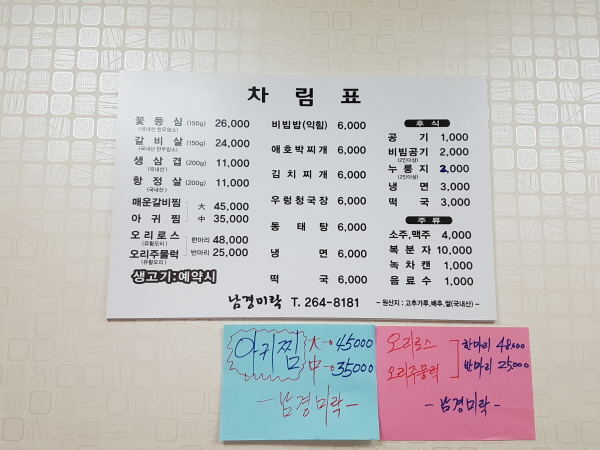 차 림 표
꽃 등 심 (150g) 26,000
(국내산 한우암소)
갈 비 살 (150g) 24,000
(국내산 한우암소)
생 삼 겹 (200g) 11,000
(국내산)
항 정 살 (200g) 11,000
(국내산)
매운갈비찜 大 45,000
아 귀 찜 中 35,000
오 리 로 스 한마리 48,000
(유황오리)
오리주물럭 반마리 25,000
(유황오리)
생고기:예약시
비빔밥(익힘) 6,000
애호박찌개 6,000
김 치 찌 개 6,000
우렁청국장 6,000
동 태 탕 6,000
냉 면 6,000
떡 국 6,000
후 식
공 기 1,000
비빔공기 2,000
(2인이상)
누 룽 지 2,000
(2인이상)
냉 면 3,000
떡 국 3,000
주 류
소주,맥주 4,000
복 분 자 10,000
녹 차 캔 1,000
음 료 수 1,000
남경미락 T. 264-8181
- 원산지 : 고추가루,배추,쌀(국내산) -
아귀찜 大 45000
中 35000
- 남경미락 -
오리로스 한마리 48,000
오리주물럭 반마리 25,000
- 남경미락 -